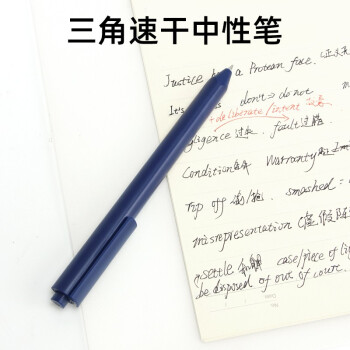 三角速干中性笔
Justice has a Protean face.
It's don't => do not
+deliberate/intent 故意
negligence 过失 fault 过错
Condition 条件 Warranty
rip off smashed =
misrepresentation
settle 和解 case/piece of
be disposed of out of court.